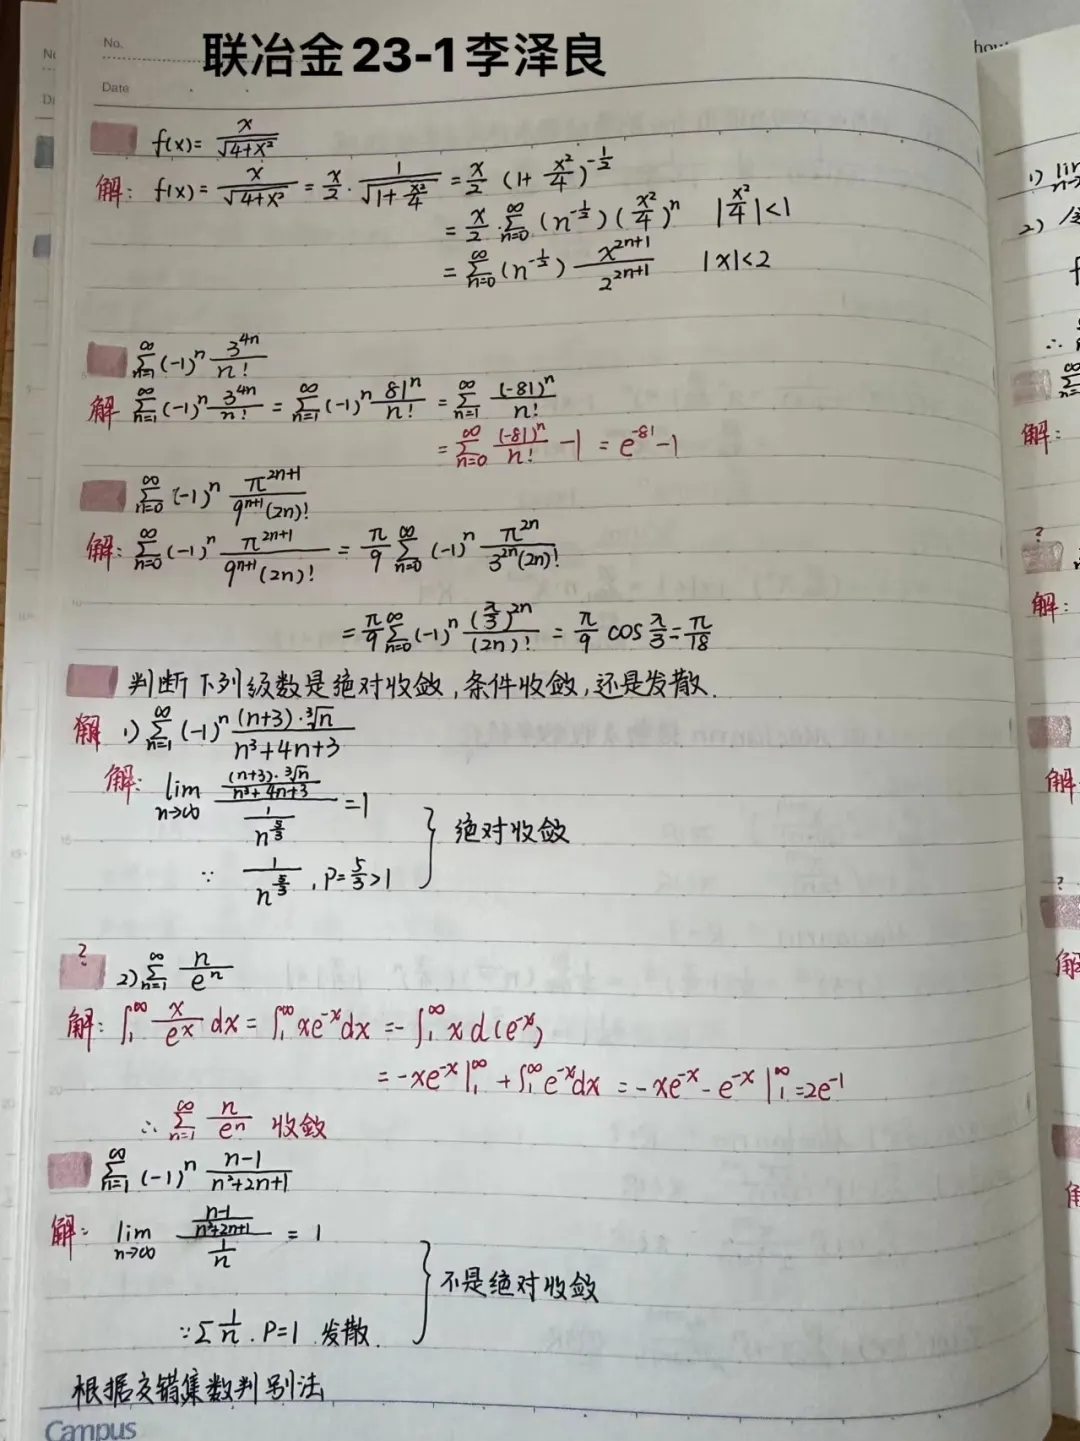 No.
联冶金23-1李泽良
Date
f(x)= x/√(4+x²)
解: f(x)= x/√(4+x²) = x/2 · 1/√(1+x²/4) = x/2 (1+x²/4)^(-1/2)
= x/2 · ∑_{n=0}^∞ (n^(-1/2)) (x²/4)^n |x²/4|<1
= ∑_{n=0}^∞ (n^(-1/2)) x^(2n+1)/2^(2n+1) |x|<2
∑_{n=1}^∞ (-1)^n 3^(4n)/n!
解 ∑_{n=1}^∞ (-1)^n 3^(4n)/n! = ∑_{n=1}^∞ (-1)^n 81^n/n! = ∑_{n=1}^∞ (-81)^n/n!
= ∑_{n=0}^∞ (-81)^n/n! -1 = e^(-81) -1
∑_{n=0}^∞ (-1)^n π^(2n+1)/(9^(n+1)(2n)!)
解: ∑_{n=0}^∞ (-1)^n π^(2n+1)/(9^(n+1)(2n)!) = π/9 ∑_{n=0}^∞ (-1)^n π^(2n)/(3^(2n)(2n)!)
= π/9 ∑_{n=0}^∞ (-1)^n (π/3)^(2n)/(2n)! = π/9 cos π/3 = π/18
判断下列级数是绝对收敛,条件收敛,还是发散.
解 1) ∑_{n=1}^∞ (-1)^n (n+3)·³√n/(n³+4n+3)
解: lim_{n→∞} ((n+3)·³√n/(n³+4n+3))/(1/n^(5/3)) =1
∵ 1/n^(5/3), P=5/3>1 } 绝对收敛
?
2) ∑_{n=1}^∞ n/e^n
解: ∫_1^∞ x/e^x dx = ∫_1^∞ xe^(-x)dx = -∫_1^∞ x d(e^(-x))
= -xe^(-x)|_1^∞ + ∫_1^∞ e^(-x)dx = -xe^(-x) - e^(-x)|_1^∞ = 2e^(-1)
∴ ∑_{n=1}^∞ n/e^n 收敛
∑_{n=1}^∞ (-1)^n (n-1)/(n²+2n+1)
解: lim_{n→∞} ((n-1)/(n²+2n+1))/(1/n) = 1
∵ ∑ 1/n . P=1 发散. } 不是绝对收敛
根据交错集数判别法
Campus
1) lim
2)
解:
?
解:
解
?
解